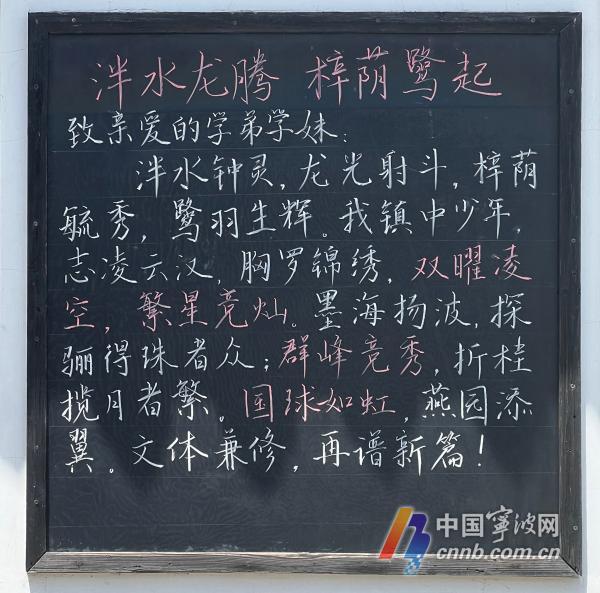 泮水龙腾 梓荫鹭起
致亲爱的学弟学妹:
泮水钟灵,龙光射斗,梓荫
毓秀,鹭羽生辉。我镇中少年,
志凌云汉,胸罗锦绣,双曜凌
空,繁星竞灿。墨海扬波,探
骊得珠者众;群峰竞秀,折桂
揽月者繁。国球如虹,燕园添
翼。文体兼修,再谱新篇!
中国宁波网
cnnb.com.cn